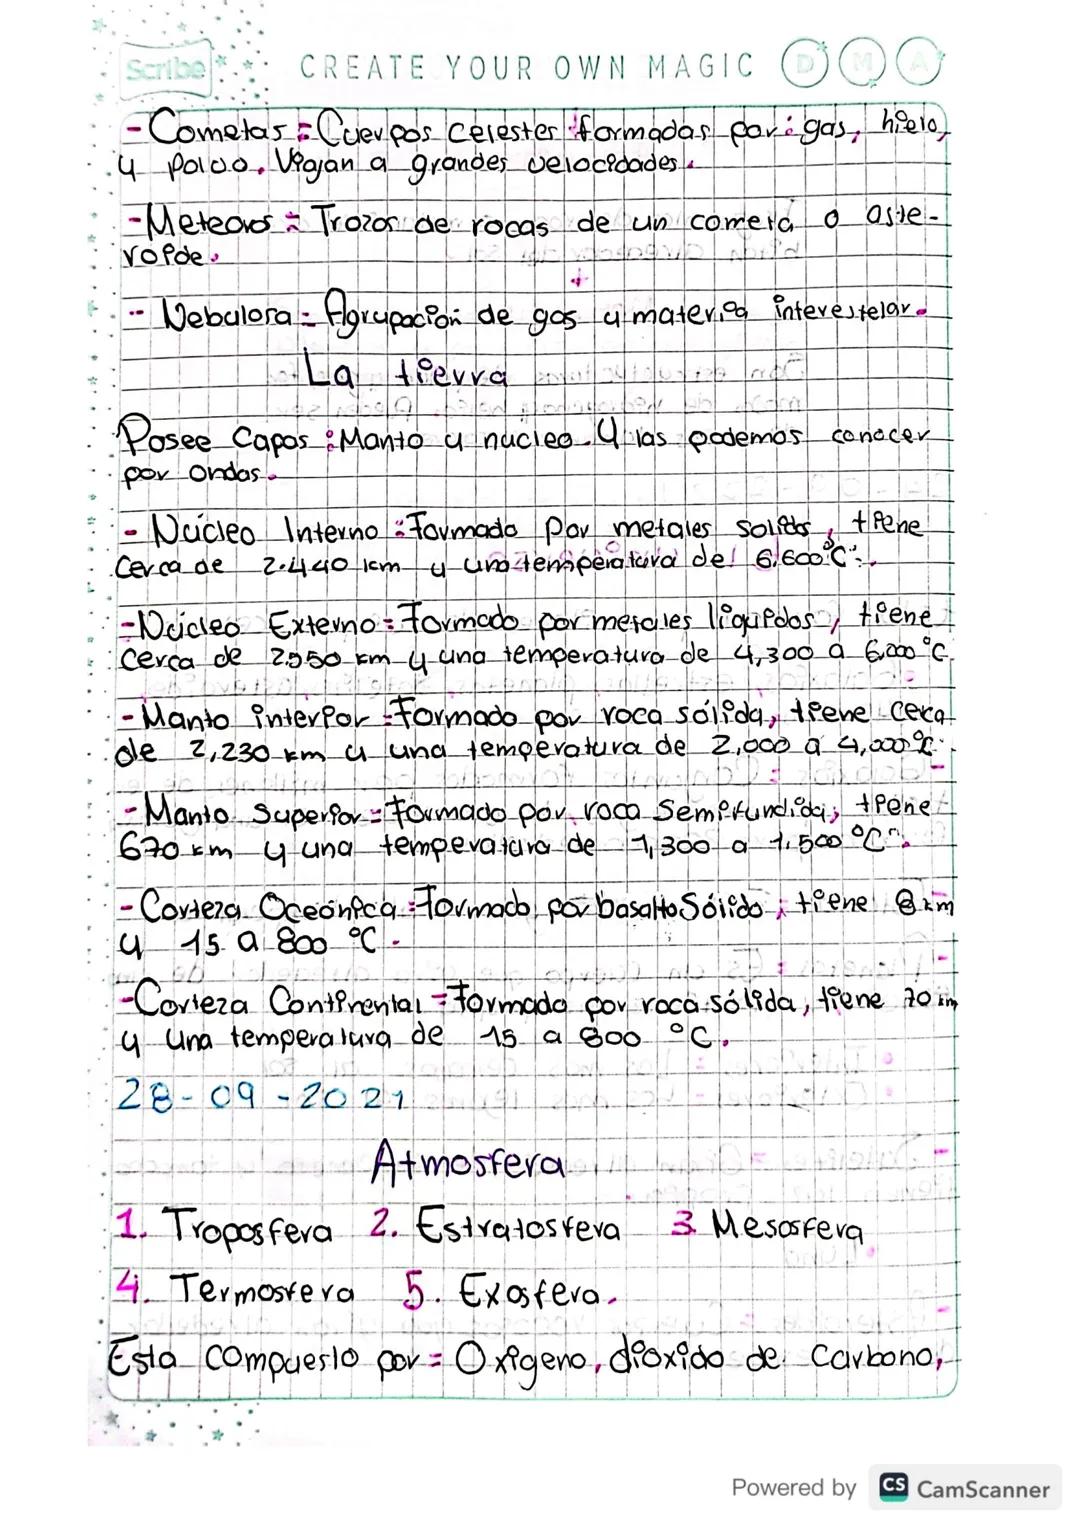 Scribe
CREATE YOUR OWN MAGIC D M A
- Cometas = Cuerpos celestes formadas por: gas, hielo,
y polvo. Viajan a grandes velocidades.
- Meteoros = Trozos de rocas de un cometa o aste-
roide.
- Nebulosa = Agrupación de gas y materia interestelar.
La tierra
Posee Capas: Manto y nucleo. Y las podemos conocer
por ondas.
- Núcleo Interno: Formado por metales solidos, tiene
Cerca de 2.440 km y una temperatura de 6.600°C.
- Núcleo Externo = Formado por metales liquidos, tiene
cerca de 2550 km y una temperatura de 4,300 a 6,000 °C.
- Manto interior = Formado por roca sólida, tiene cerca
de 2,230 km y una temperatura de 2,000 a 4,000°C.
- Manto Superior = Formado por roca Semifundida, tiene
670 km y una temperatura de 1,300 a 1,500 °C.
- Corteza Oceánica = Formado por basalto Sólido, tiene 8 km
y 15 a 800 °C.
- Corteza Continental = Formado por roca sólida, tiene 70 km
y una temperatura de 15 a 800 °C.
28-09-2021
Atmosfera
1. Troposfera 2. Estratosfera 3. Mesosfera
4. Termosfera 5. Exosfera.
Esta compuesto por = Oxigeno, dioxido de Carbono,
Powered by CS CamScanner